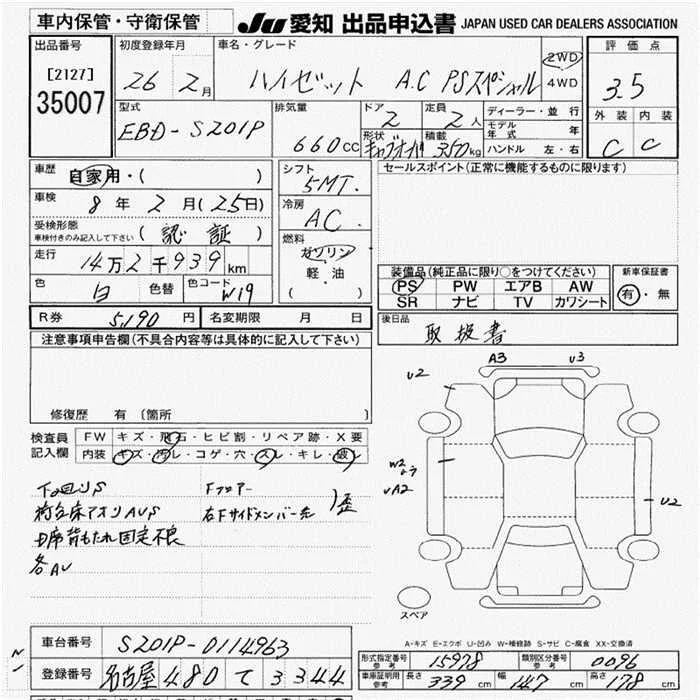 車内保管・守衛保管
JU 愛知 出品申込書 JAPAN USED CAR DEALERS ASSOCIATION
出品番号 [2127] 35007
初度登録年月 26年 2月
車名・グレード ハイゼット A.C PSスペシャル 2WD 4WD
評価点 3.5
外装 C 内装 C
型式 EBD-S201P
排気量 660cc
ドア 2 定員 2人
形状 キャブオーバ 積載 350kg
ディーラー・並行
モデル年式 年
ハンドル 左・右
車歴 自家用・( )
車検 8年 2月(25日)
受検形態 車検付きのみ記入して下さい (認証)
走行 14万2千939km
色 白 色替 色コード W19
シフト 5MT.
冷房 AC.
燃料 ガソリン 軽・油 ( )
セールスポイント(正常に機能するものに限ります)
装備品(純正品に限り○をつけてください)
PS PW エアB AW
SR ナビ TV カワシート
新車保証書 有・無
R券 5,190円 名変期限 月 日
後日品 取扱書
注意事項申告欄(不具合内容等は具体的に記入して下さい)
修復歴 有 〔箇所 〕
検査員記入欄
FW キズ・飛石・ヒビ割・リペア跡・X要
内装 キズ・汚レ・コゲ・穴・スレ・キレ・破レ
下回りS Fフロアー
荷台床アオリAUS 右Fサイドメンバー先 )歪
D席背もたれ固定不良
各AU
A3 U3
U2
W2
UA2
U2
スペア
A-キズ E-エクボ U-凹み W-補修跡 S-サビ C-腐食 XX-交換済
車台番号 S201P-0114963
登録番号 名古屋 480 て 3344
形式指定番号 参考 15978 類別区分番号 参考 0096
車庫証明用 参考 長さ 339cm 幅 147cm 高さ 178cm